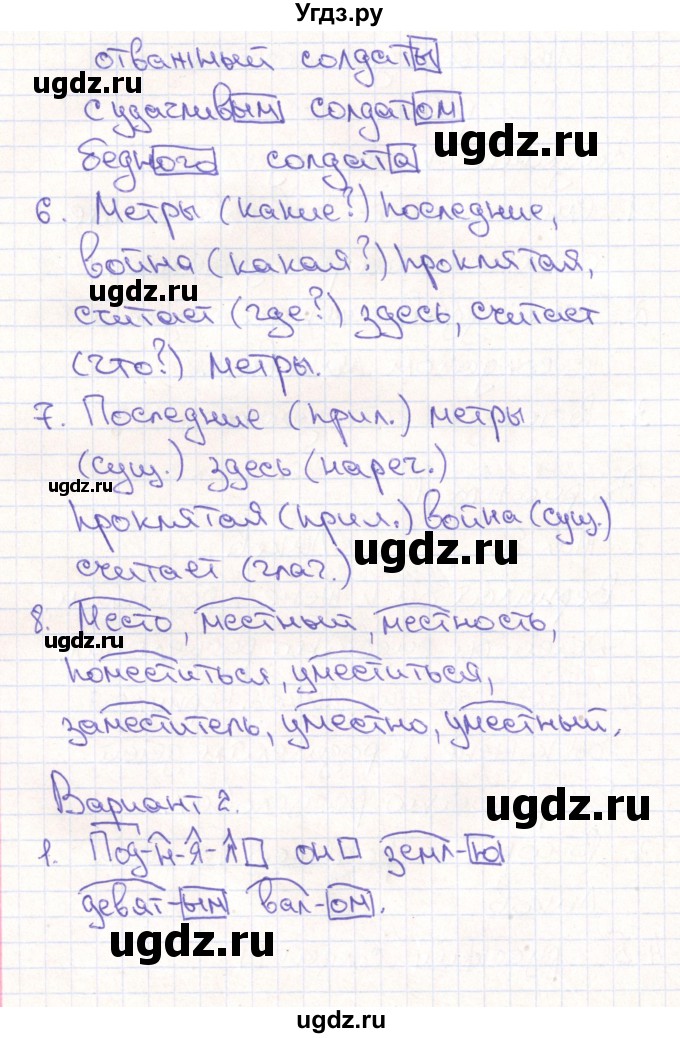 Угдз.ру
отважный солдаты
ugdz.ru
с удачливым солдатом
ugdz.ru
бедного солдата
6. Метры (какие?) последние,
война (какая?) проклятая,
ugdz.ru
считает (где?) здесь, считает
(что?) метры.
7. Последние (прил.) метры
(сущ.) здесь (нареч.)
ugdz.ru
проклятая (прил.) война (сущ.)
ugdz.ru
считает (глаг.)
8. Место, местный, местность,
ugdz.ru
поместиться, уместиться,
заместитель, уместно, уместный.
Вариант 2.
ugdz.ru
1. Под-н-я-л он земл-ю
девят-ым вал-ом.
ugdz.ru
ugdz.ru